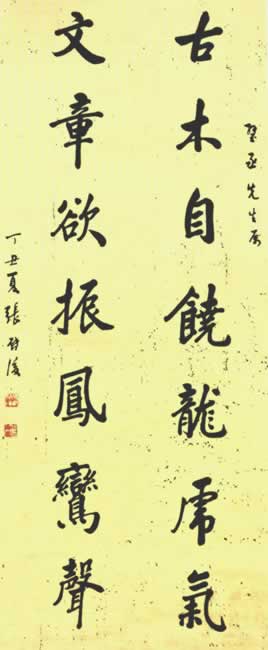 古木自饒龍虎氣
先生屬
文章欲振鳳鸞聲
丁丑夏張啟後